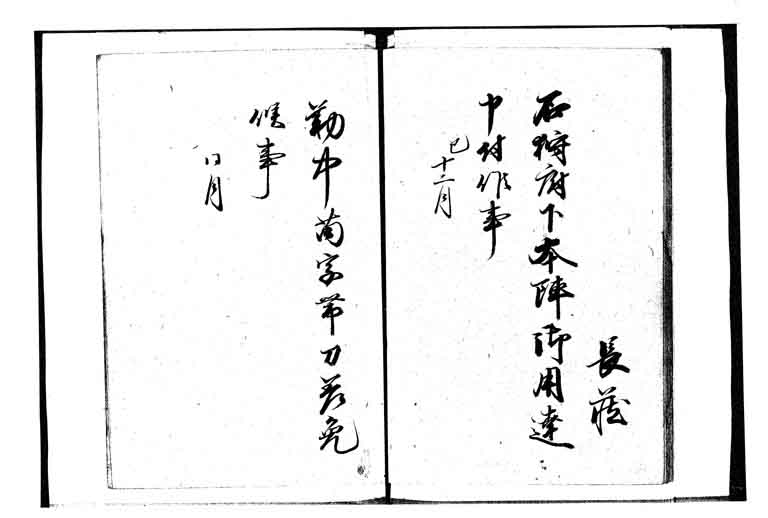 長蔵
石狩府下本陣御用達
申付候事
巳十二月
勤中苗字帯刀差免
候事
同月